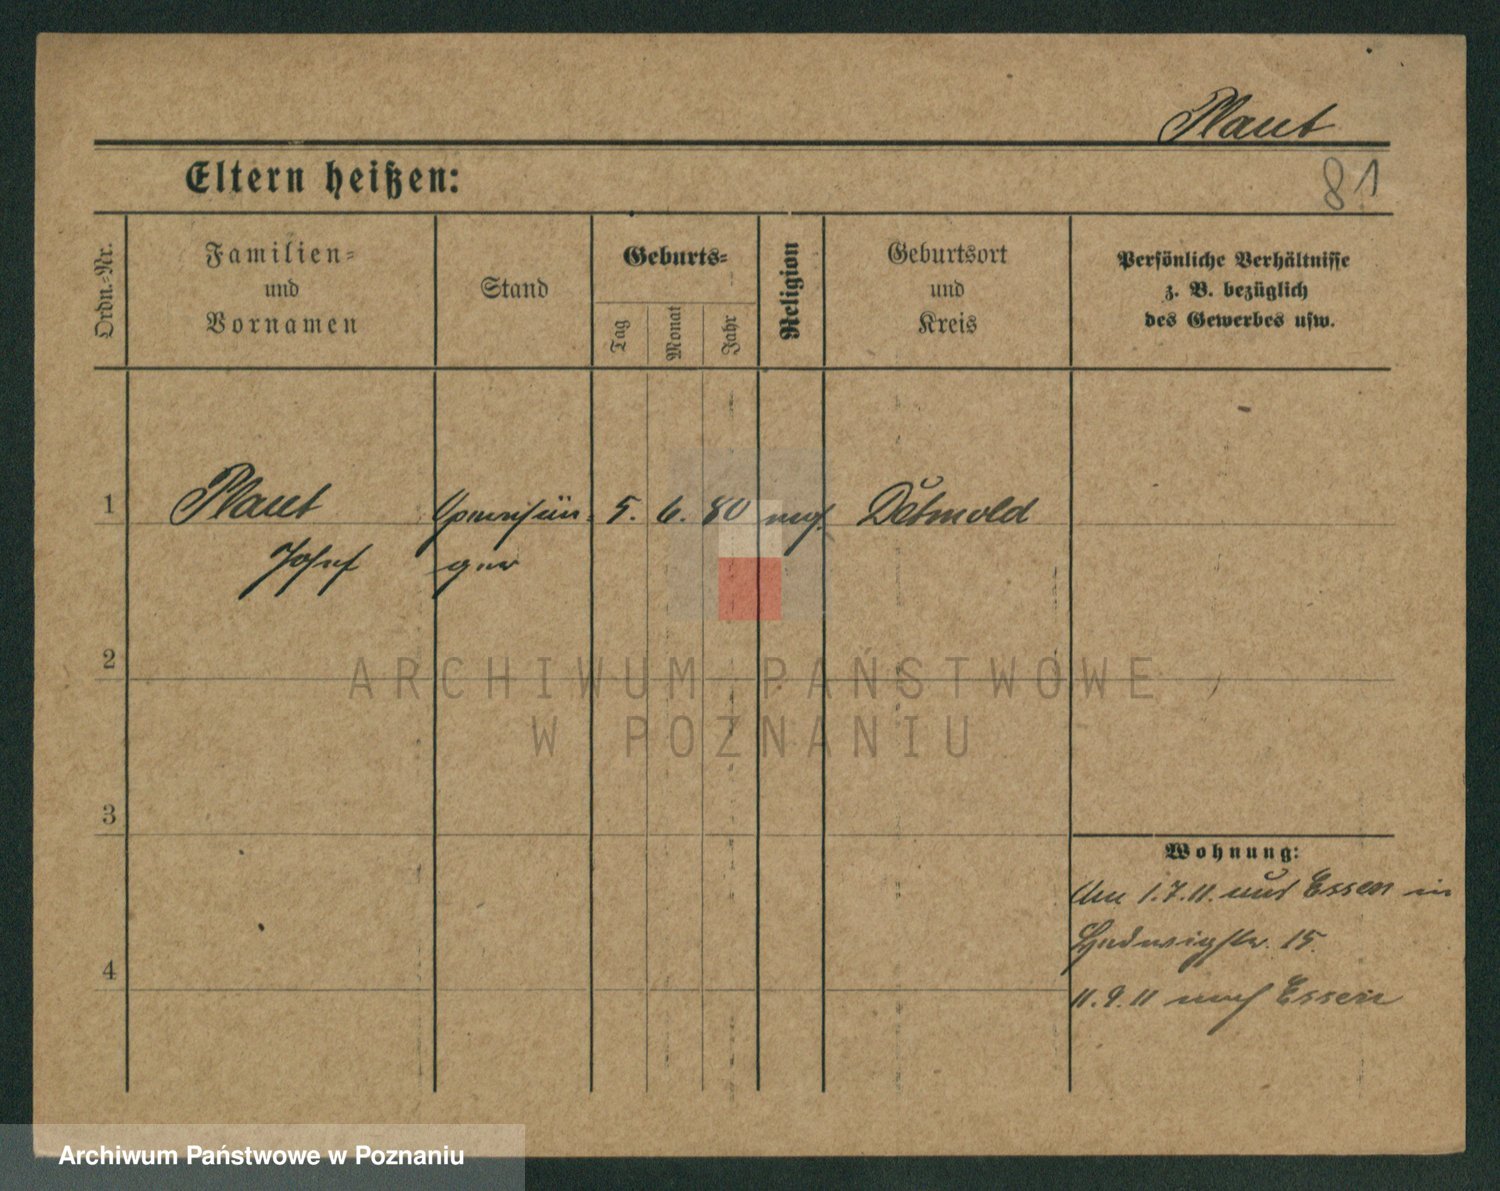 Plaut
81
Eltern heißen:
Ordn.=Nr.
Familien=
und
Vornamen
Stand
Geburts=
Tag
Monat
Jahr
Religion
Geburtsort
und
Kreis
Persönliche Verhältnisse
z. B. bezüglich
des Gewerbes usw.
1
Plaut Opernsän= 5. 6. 80 Detmold
Josef ger
2
3
4
Wohnung:
Am 1.7.11. aus Essen in
Hedwigstr. 15.
11.9.11 nach Essen
ARCHIWUM PAŃSTWOWE
W POZNANIU
Archiwum Państwowe w Poznaniu